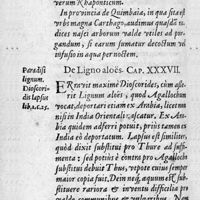 verum Rhaponticum.
In prouincia de Quimbaia, in qua sita est
vrbs magna Carthago, audimus quasdã ra-
dices nasci arborum valde vtiles ad pur-
gandum, si earum sumatur decoctum vt
infusio in aqua per noctem.
De Ligno aloës. CAP. XXXVII.
Paradisi
lignum.
Dioscori-
dis lapsus
lib.1.c.25.
ERravit maximè Dioscorides, cum asse-
rit Lignum Aloës, quod Agallochum
dicitur, portari etiam ex Arabia, licet nomi-
nis in India Orientali nascatur. Ex Ara-
bia quidem adferri potuit, priùs tamen ex
India eò deportatum. Lapsus est similiter,
quòd dixit substitui pro Thure ad suffu-
mendi: si contrà pro Agallocho
substitui debuit Thus, vtpote cuius semper
maior copia fuit. Dein neq; aequum est sub-
stituere rariora & inventu difficilia pro